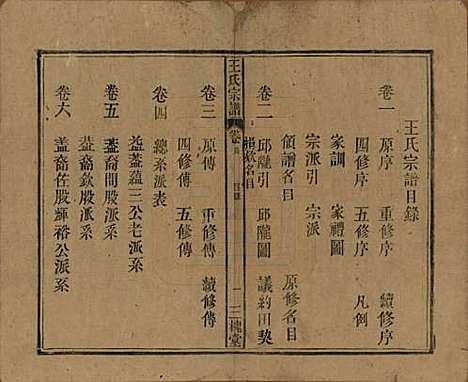 王氏宗譜目錄
卷一
原序　重修序　續修序
四修序　五修序　凡例
家訓　家禮圖
宗派引　宗派
領譜名目　原修名目
卷二
邱隴引　邱隴圖　議約田契
捐欵名目
王氏宗譜　卷首　目錄　一　三槐堂
卷三
原傳　重修傳　續修傳
四修傳　五修傳
卷四
總系派表
益蓋蘊三公老派系
卷五
蓋裔間股派系
蓋裔欽股派系
卷六
蓋裔佐股輝裕公派系